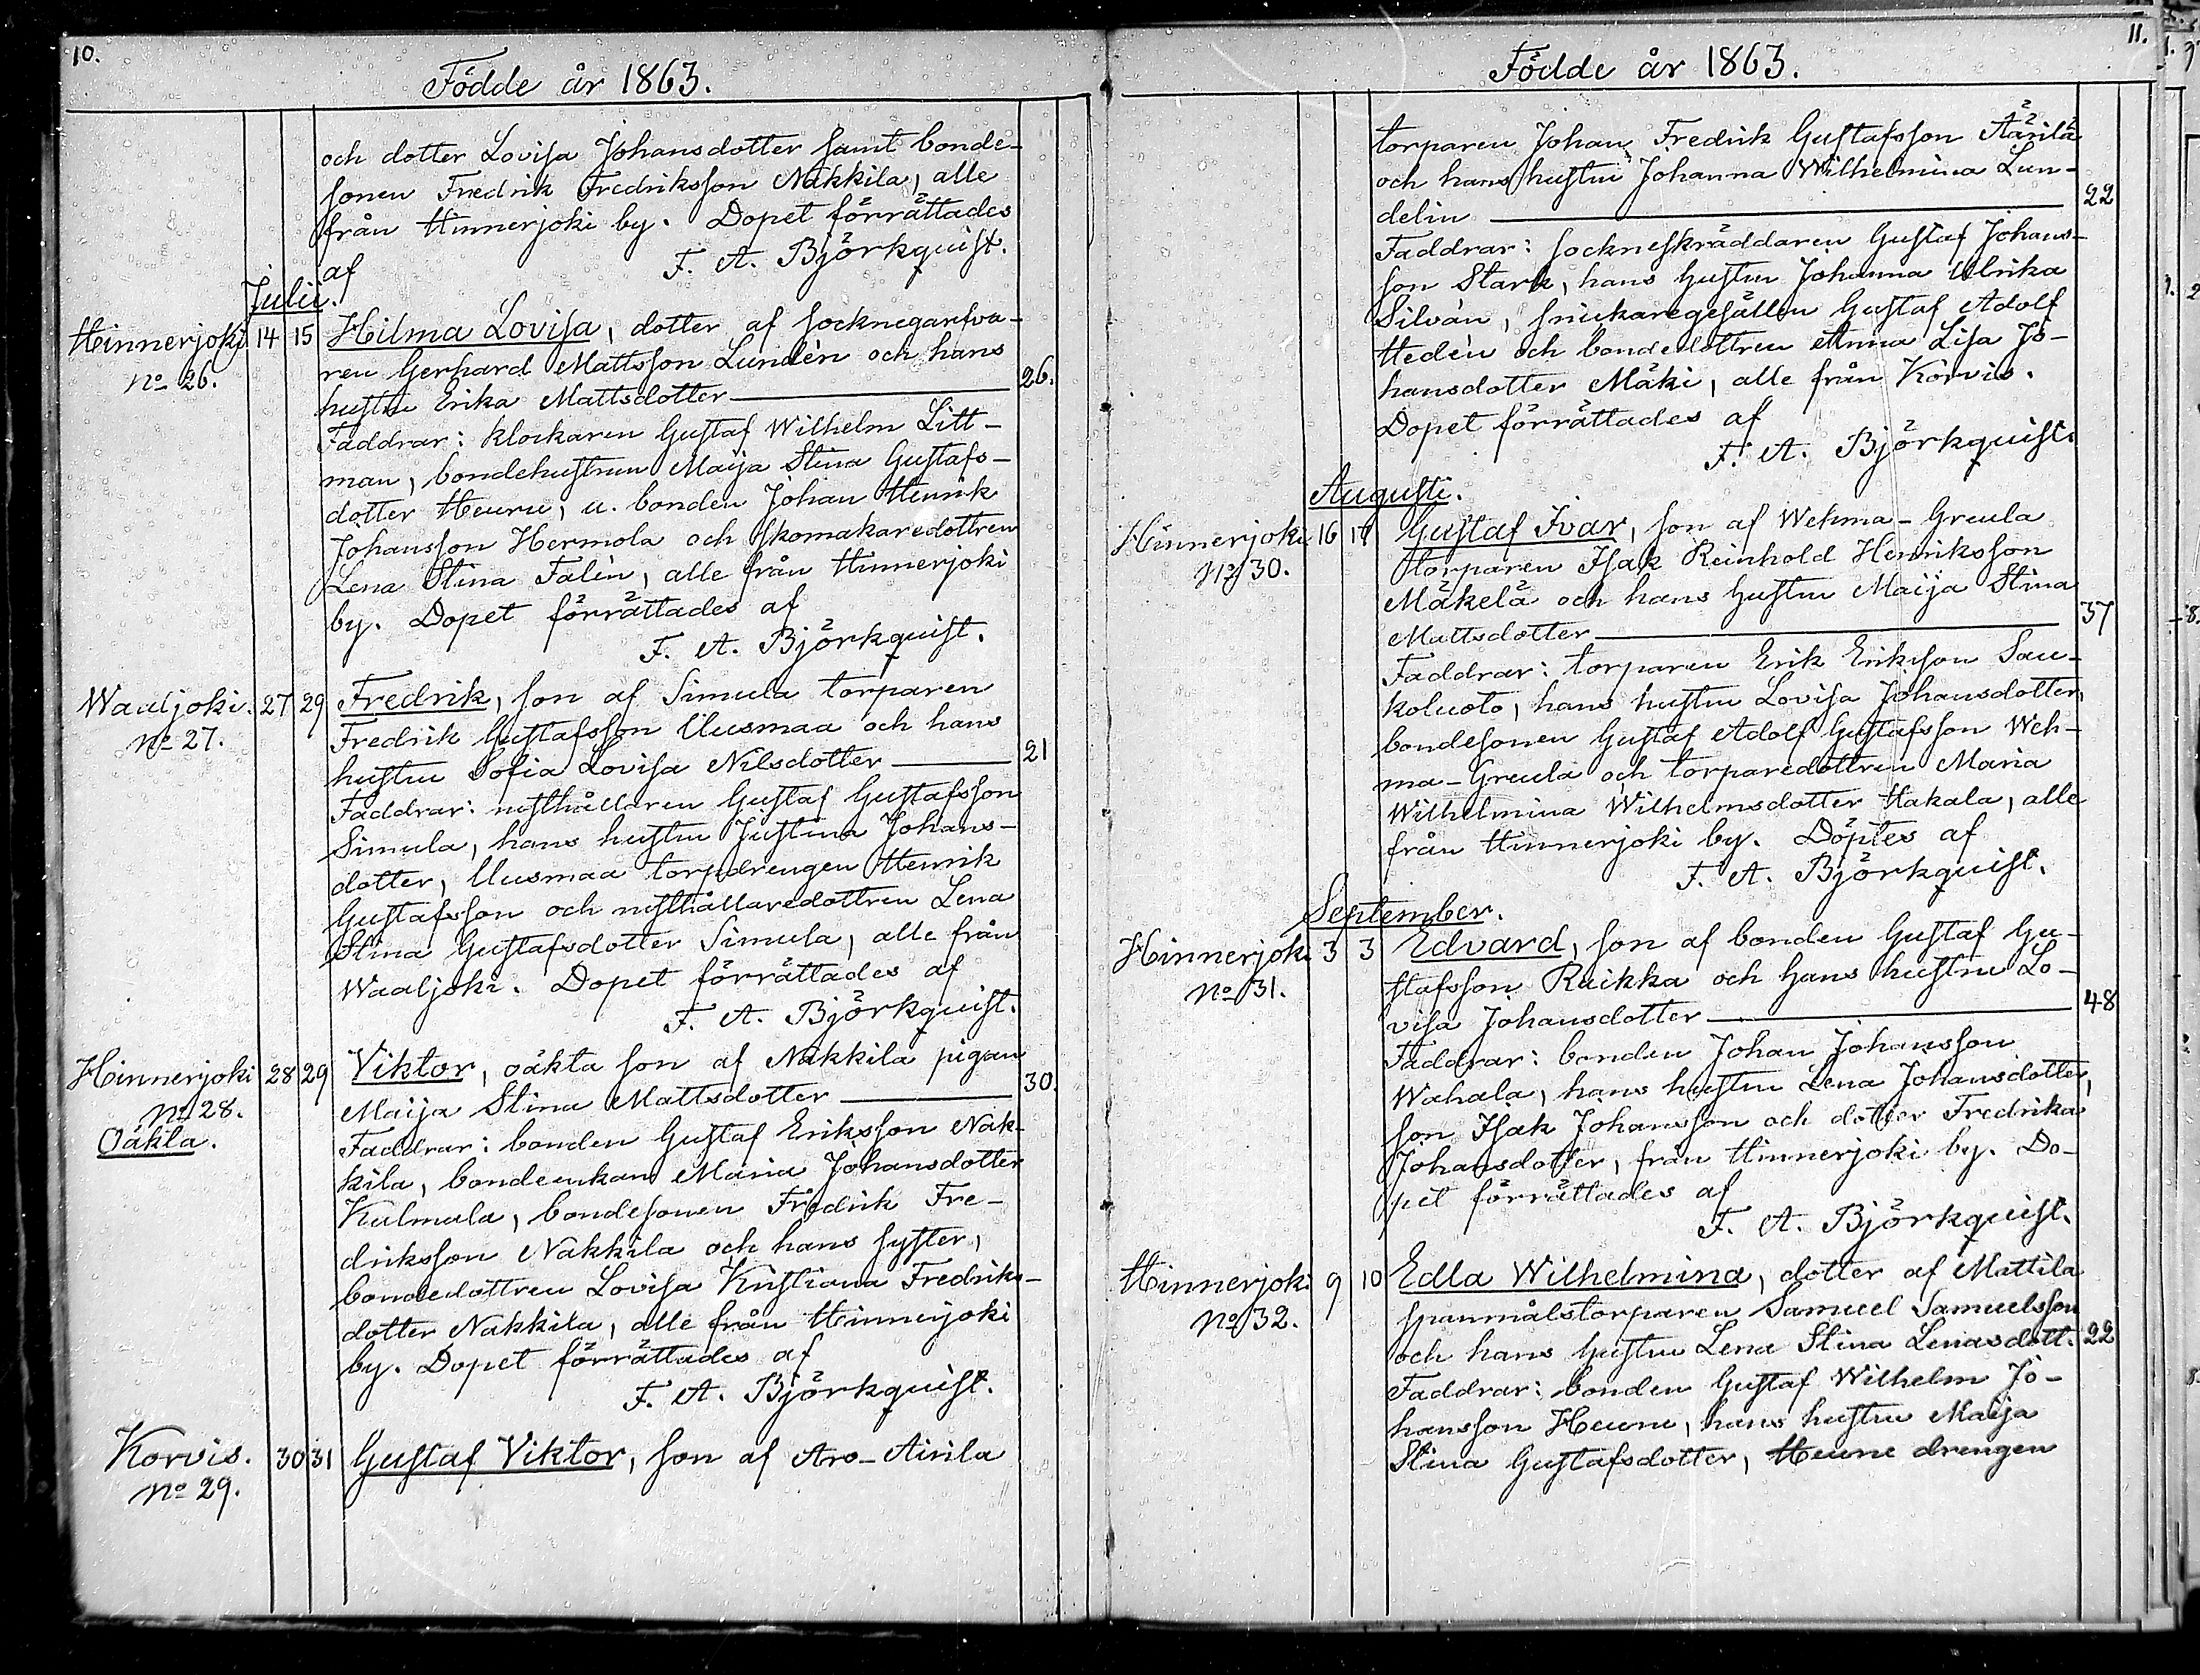 10.
Födde år 1863.
och dotter Lovisa Johansdotter samt bonde-
sonen Fredrik Fredriksson Nakkila, alle
från Hinnerjoki by. Dopet förrättades
af F. A. Björkquist.
Julii.
Hinnerjoki 14 15 Hilma Lovisa, dotter af socknegarfva-
No 26. ren Gerhard Mattsson Lundèn och hans
hustru Erika Mattsdotter 26.
Faddrar: klockaren Gustaf Wilhelm Litt-
man, bondehustrun Maija Stina Gustafs-
dotter Heuru, u. bonden Johan Henrik
Johansson Hermola och skomakaredottren
Lena Stina Falèn, alle från Hinnerjoki
by. Dopet förrättades af
F. A. Björkquist.
Waaljoki. 27 29 Fredrik, son af Simula torparen
No 27. Fredrik Gustafsson Uusmaa och hans
hustru Sofia Lovisa Nilsdotter 21
Faddrar: rusthållaren Gustaf Gustafsson
Simula, hans hustru Justina Johans-
dotter, Uusmaa torpdrengen Henrik
Gustafsson och rusthållaredottren Lena
Stina Gustafsdotter Simula, alle från
Waaljoki. Dopet förrättades af
F. A. Björkquist.
Hinnerjoki 28 29 Viktor, oäkta son af Nakkila pigan
No 28. Maija Stina Mattsdotter 30.
Oäkta. Faddrar: bonden Gustaf Eriksson Nak-
kila, bondeenkan Maria Johansdotter
Kulmala, bondesonen Fredrik Fre-
driksson Nakkila och hans syster,
bondedottren Lovisa Kristiana Fredriks-
dotter Nakkila, alle från Hinnerjoki
by. Dopet förrättades af
F. A. Björkquist.
Korvis. 30 31 Gustaf Viktor, son af Aro-Airila
No 29.
11.
Födde år 1863.
torparen Johan Fredrik Gustafsson Äärilä
och hans hustru Johanna Wilhelmina Lun-
delin 22
Faddrar: sockneskräddaren Gustaf Johans-
son Stark, hans hustru Johanna Ulrika
Silvàn, snickaregesällen Gustaf Adolf
Hedèn och bondedottren Anna Lisa Jo-
hansdotter Mäki, alle från Korvis.
Dopet förrättades af
F. A. Björkquist.
Augusti.
Hinnerjoki 16 Gustaf Ivar, son af Wehma-Greula
No 30. torparen Isak Reinhold Henriksson
Mäkelä och hans hustru Maija Stina
Mattsdotter 37
Faddrar: torparen Erik Eriksson Sau-
koluoto, hans hustru Lovisa Johansdotter,
bondesonen Gustaf Adolf Gustafsson Weh-
ma-Greula och torparedottren Maria
Wilhelmina Wilhelmsdotter Hakala, alle
från Hinnerjoki by. Döptes af
F. A. Björkquist.
September.
Hinnerjoki 3 3 Edvard, son af bonden Gustaf Gu-
No 31. stafsson Raikka och hans hustru Lo-
visa Johansdotter 48
Faddrar: bonden Johan Johansson
Wahala, hans hustru Lena Johansdotter,
son Isak Johansson och dotter Fredrika
Johansdotter, från Hinnerjoki by. Do-
pet förrättades af
F. A. Björkquist.
Hinnerjoki 9 10 Edla Wilhelmina, dotter af Mattila
No 32. spanmålstorparen Samuel Samuelsson
och hans hustru Lena Stina Lenasdott. 22
Faddrar: bonden Gustaf Wilhelm Jo-
hansson Heuru, hans hustru Maija
Stina Gustafsdotter, Heuru drengen